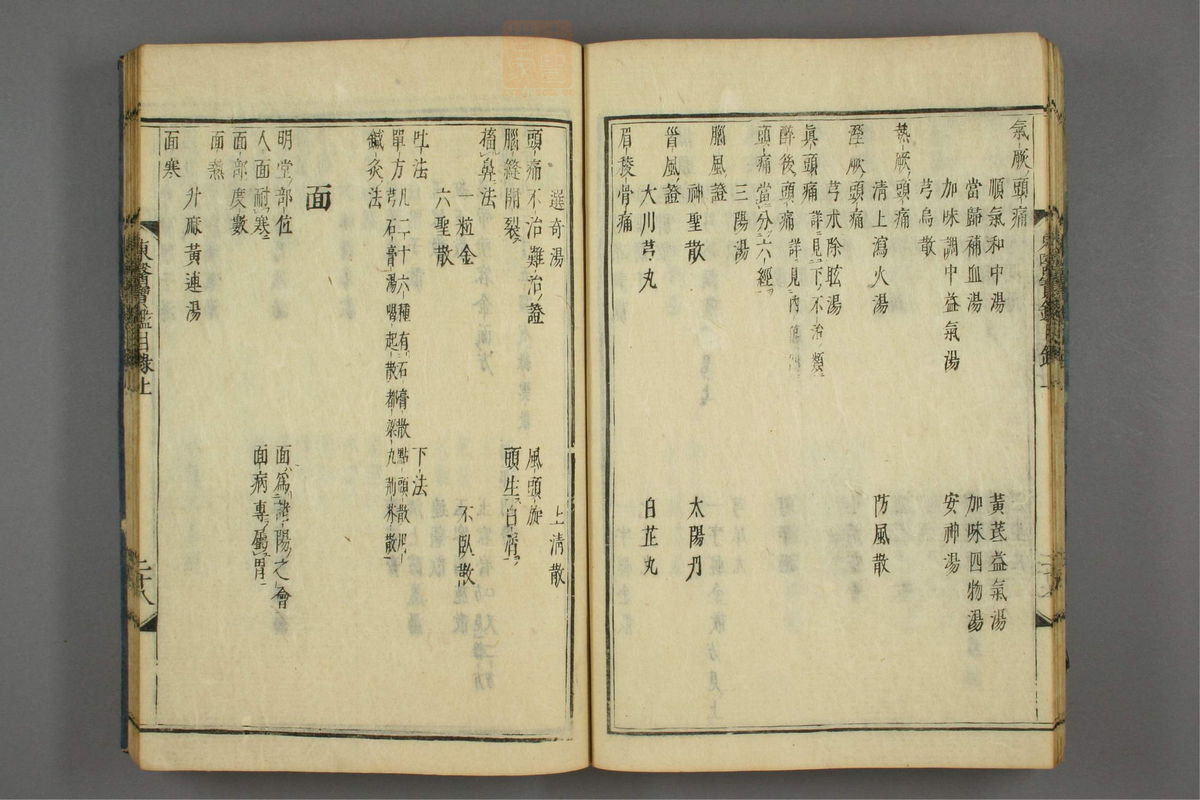 氣厥頭痛
順氣和中湯 黃茋益氣湯
當歸補血湯 加味四物湯
加味調中益氣湯 安神湯
芎烏散
熱厥頭痛
清上瀉火湯 防風散
濕厥頭痛
芎朮除眩湯
眞頭痛詳見下不治類
醉後頭痛詳見內傷
頭痛當分六經
三陽湯
腦風證
神聖散 太陽丹
首風證
大川芎丸 白芷丸
眉稜骨痛
選奇湯 上清散
頭痛不治難治證 風頭旋
腦縫開裂 頭生白屑
㗜鼻法
一粒金 不臥散
六聖散
吐法 下法
單方凡二十六種有石膏散點頭散
芎石膏湯喝起散都梁丸荊芥散
鍼灸法
面
明堂部位 面爲諸陽之會
人面耐寒 面病專屬胃
面部度數
面熱
升麻黃連湯
面寒
東醫寶鑑目錄上
二十八